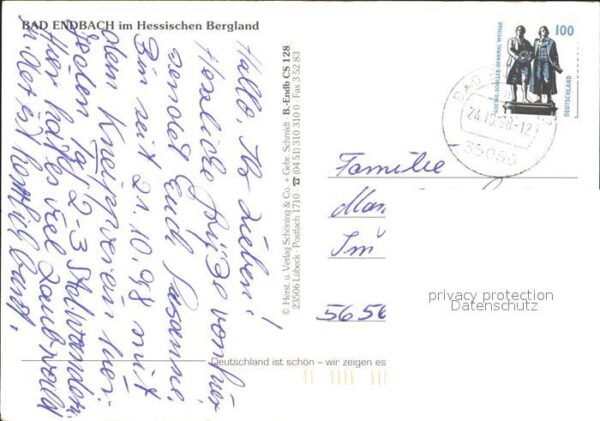 BAD ENDBACH im Hessischen Bergland
Hallo Ihr Lieben!
Herzliche Grüße von hier
sendet Euch Susanne.
Bin seit 21.10.98 mit
dem Kneippverein hier.
Jeden Tag 2-3 Std. wandern.
Hier hat es viel Laubwald
und der ist herrlich bunt.
© Herst. u. Verlag Schöning & Co. + Gebr. Schmidt · B.-Endb CS 128
23506 Lübeck · Postfach 1710 · ☎ (04 51) 310 310 0 · Fax 3 52 83
100
GOETHE-SCHILLER-DENKMAL WEIMAR
DEUTSCHLAND
BAD
24.10.98-12
35080
Familie
Im
5656
privacy protection
Datenschutz
Deutschland ist schön – wir zeigen es